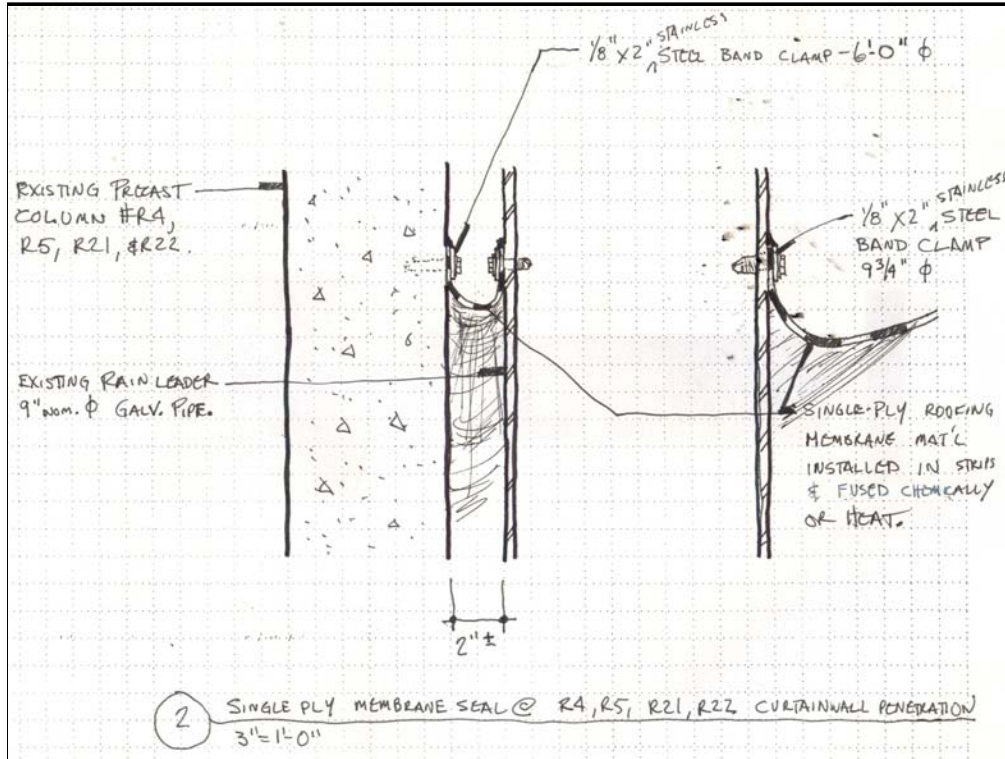 1/8" X 2" STAINLESS STEEL BAND CLAMP - 6'-0" ϕ
EXISTING PRECAST
COLUMN #R4,
R5, R21, & R22.
1/8" X 2" STAINLESS STEEL
BAND CLAMP
9 3/4" ϕ
EXISTING RAIN LEADER
9" NOM. ϕ GALV. PIPE.
SINGLE-PLY ROOFING
MEMBRANE MAT'L
INSTALLED IN STRIPS
& FUSED CHEMICALLY
OR HEAT.
2" ±
2 SINGLE PLY MEMBRANE SEAL @ R4, R5, R21, R22 CURTAINWALL PENETRATION
3" = 1'-0"